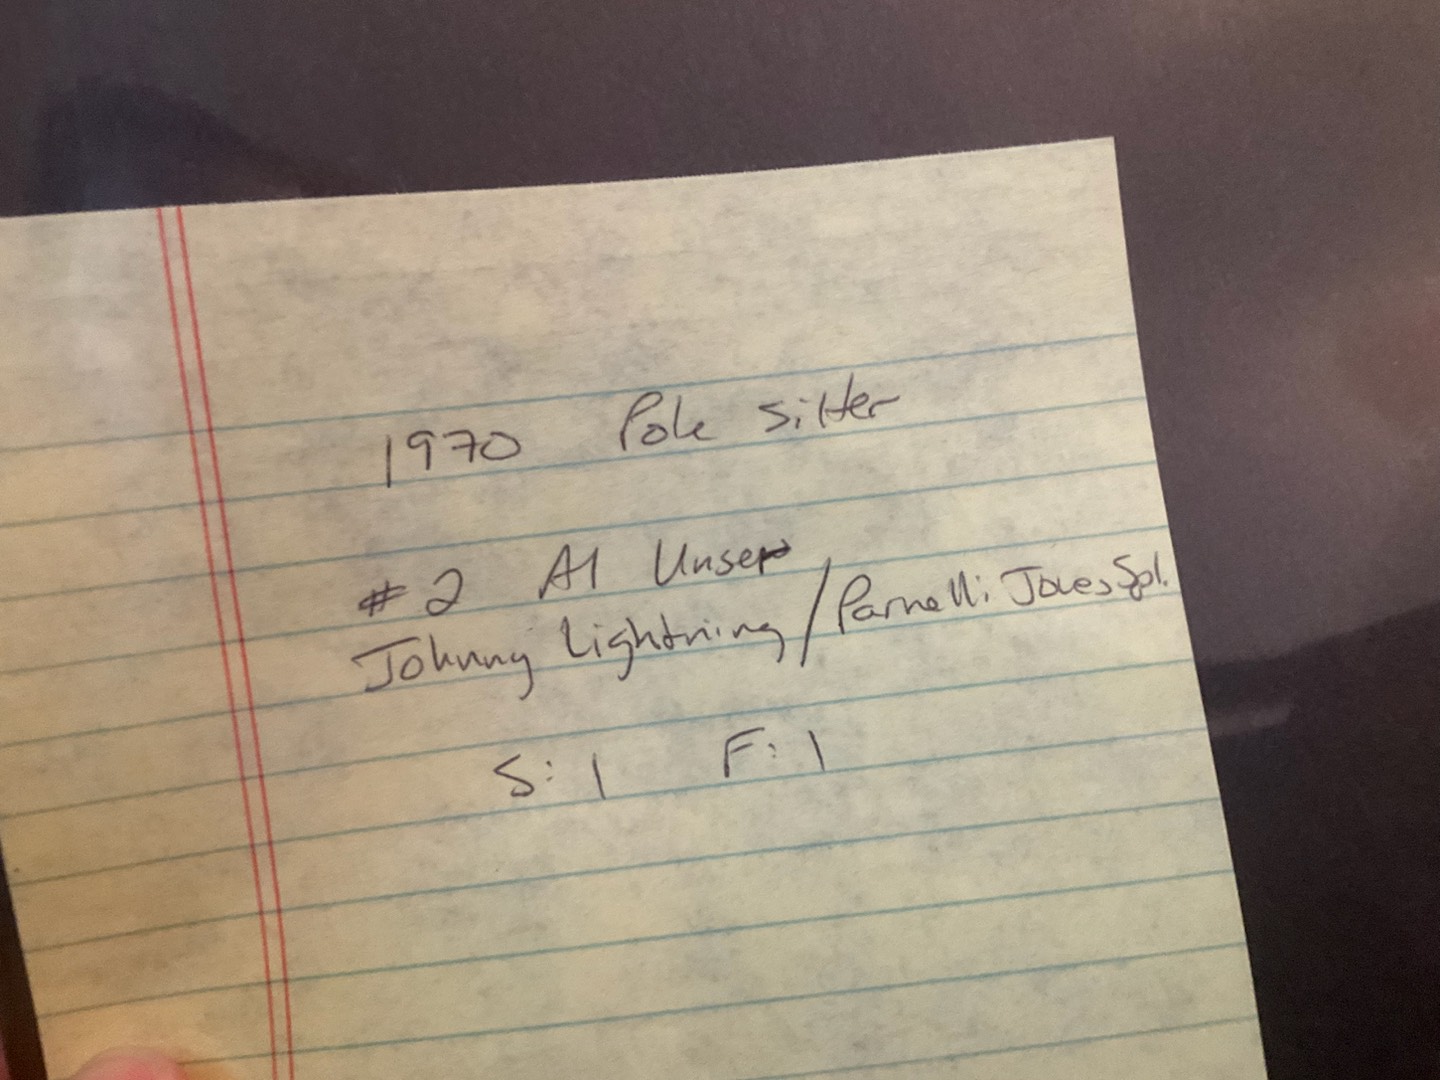 1970 Pole Sitter
#2 Al Unser
Johnny Lightning/Parnelli Jones Spl.
S: 1 F: 1